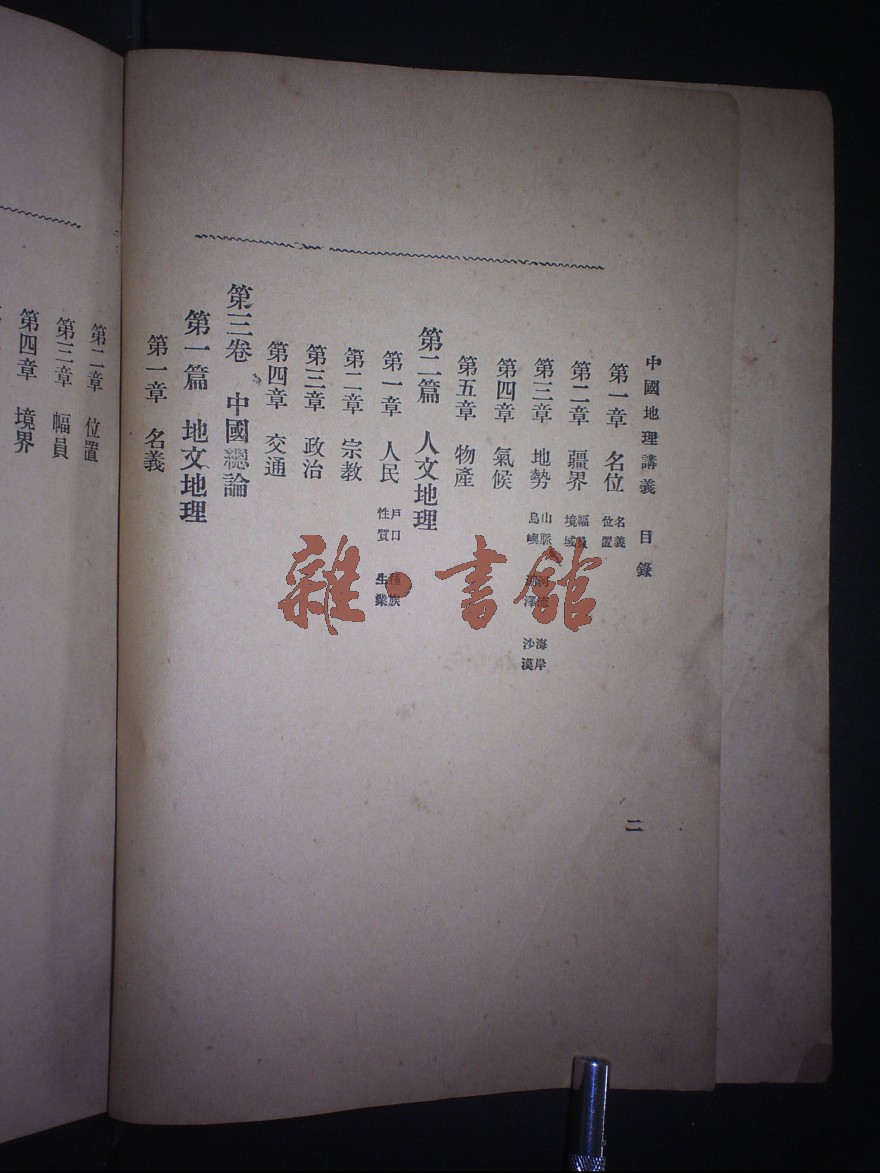 中國地理講義 目錄
第一章 名位 名義 位置
第二章 疆界 幅員 境域
第三章 地勢 山脈 河流 海岸 島嶼 湖澤 沙漠
第四章 氣候
第五章 物產
第二篇 人文地理
第一章 人民 戶口 種族 性質 生業
第二章 宗教
第三章 政治
第四章 交通
第三卷 中國總論
第一篇 地文地理
第一章 名義
二
第二章 位置
第三章 幅員
第四章 境界
雜·書館